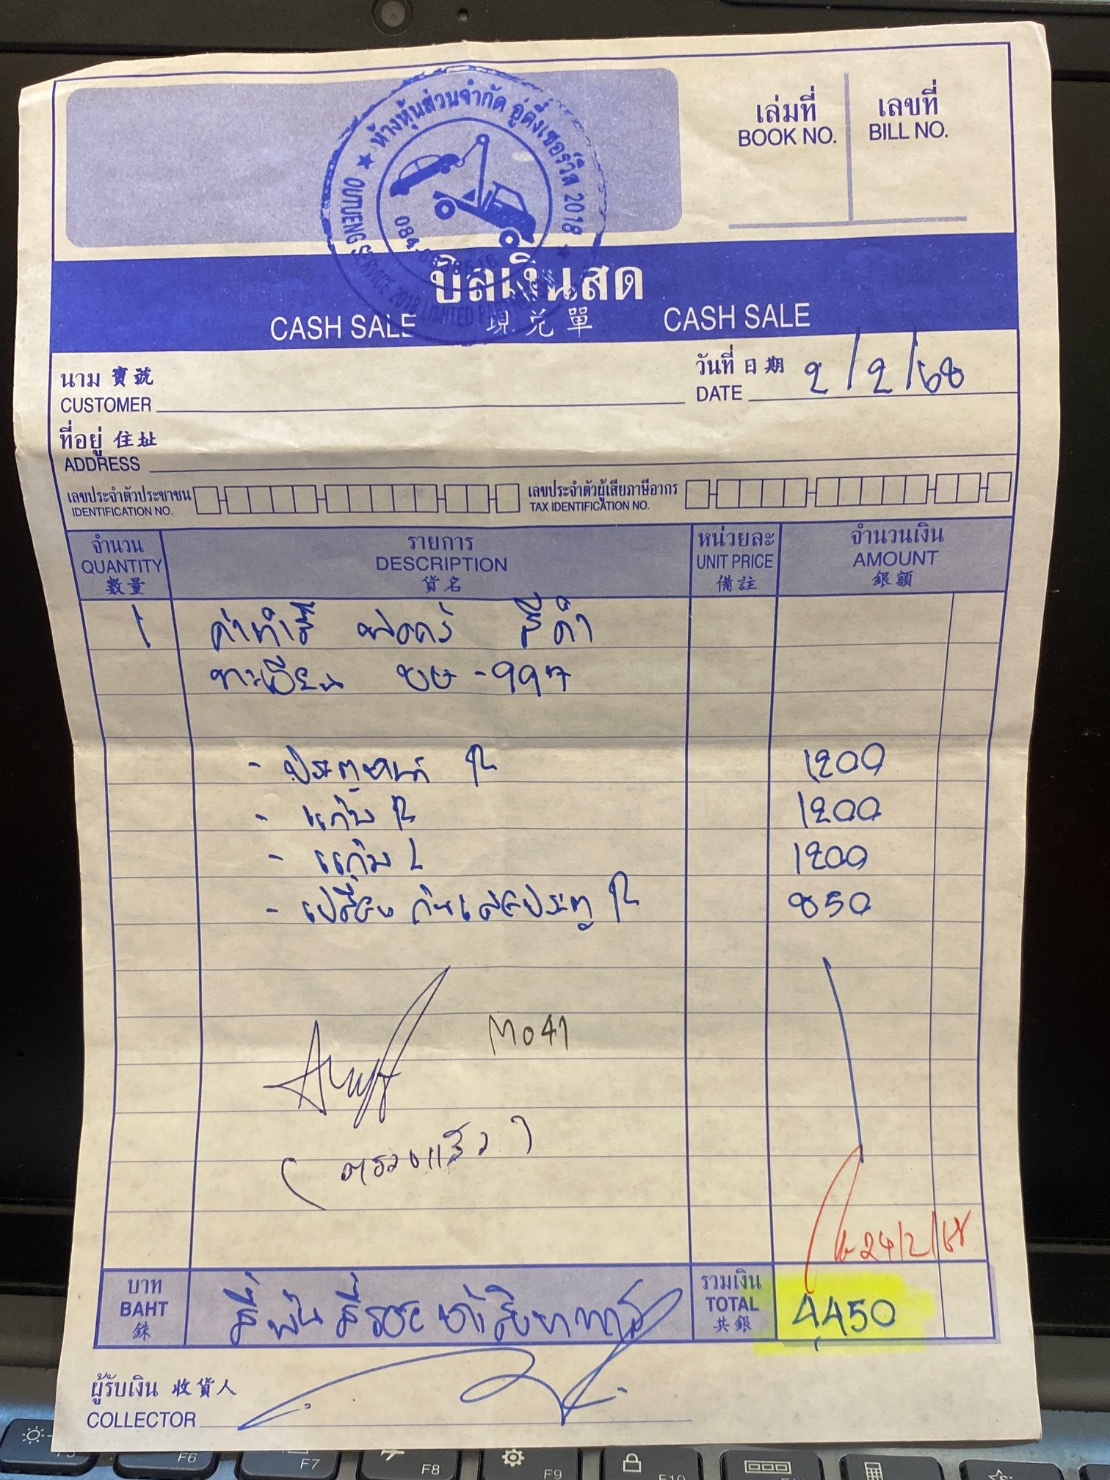 ห้างหุ้นส่วนจำกัด อู่ตึ๋งเซอร์วิส 2018
OUTUENG SERVICE 2018 LIMITED
เล่มที่ เลขที่
BOOK NO. BILL NO.
บิลเงินสด
CASH SALE 現兌單 CASH SALE
นาม 寶號 วันที่ 日期 2/2/68
CUSTOMER DATE
ที่อยู่ 住址
ADDRESS
เลขประจำตัวประชาชน เลขประจำตัวผู้เสียภาษีอากร
IDENTIFICATION NO. TAX IDENTIFICATION NO.
จำนวน รายการ หน่วยละ จำนวนเงิน
QUANTITY DESCRIPTION UNIT PRICE AMOUNT
數量 貨名 備註 銀額
1 ค่าทำสี ฟอร์ด สีดำ
ทะเบียน ขษ-997
- ประตูหน้า R 1200
- แก้ม R 1200
- แก้ม L 1200
- เปลี่ยน กันเสยประตู R 850
M041
(ตรวจแล้ว)
24/2/68
บาท สี่พันสี่ร้อยห้าสิบบาทถ้วน รวมเงิน 4,450
BAHT TOTAL
銖 共銀
ผู้รับเงิน 收貨人
COLLECTOR
F6
F7
F8
F9
F10